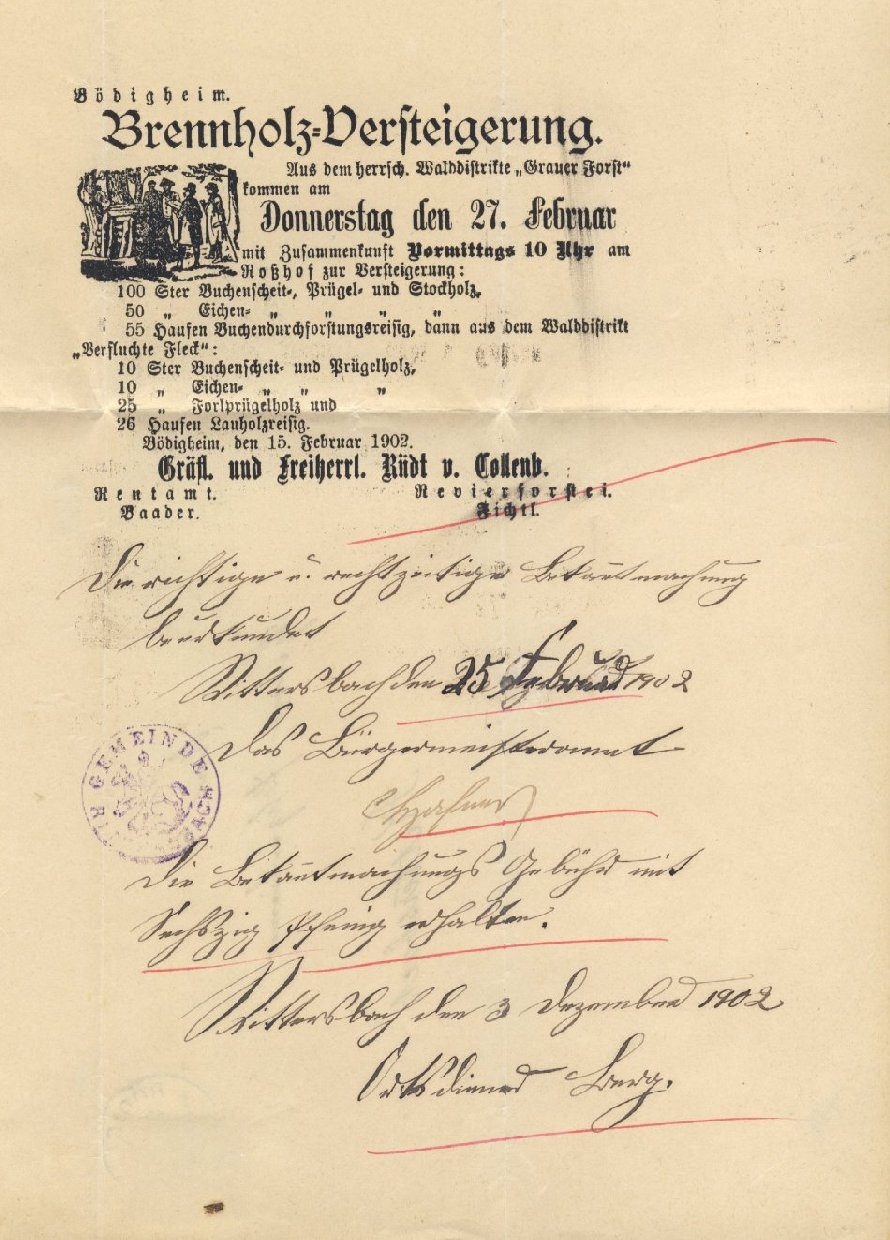 Bödigheim.
Brennholz-Versteigerung.
Aus dem herrsch. Walddistrikte „Grauer Forst“
kommen am
Donnerstag den 27. Februar
mit Zusammenkunft Vormittags 10 Uhr am
Roßhof zur Versteigerung:
100 Ster Buchenscheit-, Prügel- und Stockholz,
50 „ Eichen- „ „ „
55 Haufen Buchendurchforstungsreisig, dann aus dem Walddistrikt
„Verfluchte Fleck“:
10 Ster Buchenscheit- und Prügelholz,
10 „ Eichen- „ „ „
25 „ Forlprügelholz und
26 Haufen Lauholzreisig.
Bödigheim, den 15. Februar 1902.
Gräfl. und Freiherrl. Rüdt v. Collenb.
Rentamt. Revierforstei.
Baader. Fichtl.
Die richtige u. rechtzeitige Bekantmachung
beurkundet
Rittersbach den 25 Februar 1902
Das Bürgermeisteramt
GEMEINDE
Die Bekantmachungs Gebühr mit
Sechszig Pfenig erhalten.
Rittersbach den 3 Dezember 1902
Ortsdiener Berg.